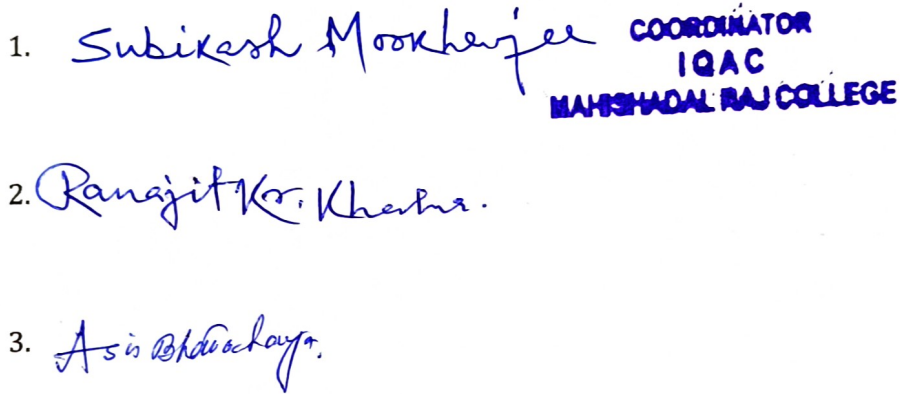 1. Subikash Mookherjee
COORDINATOR
IQAC
MAHISHADAL RAJ COLLEGE
2. Ranajit Kr.
3. Asis Bhattacharya.